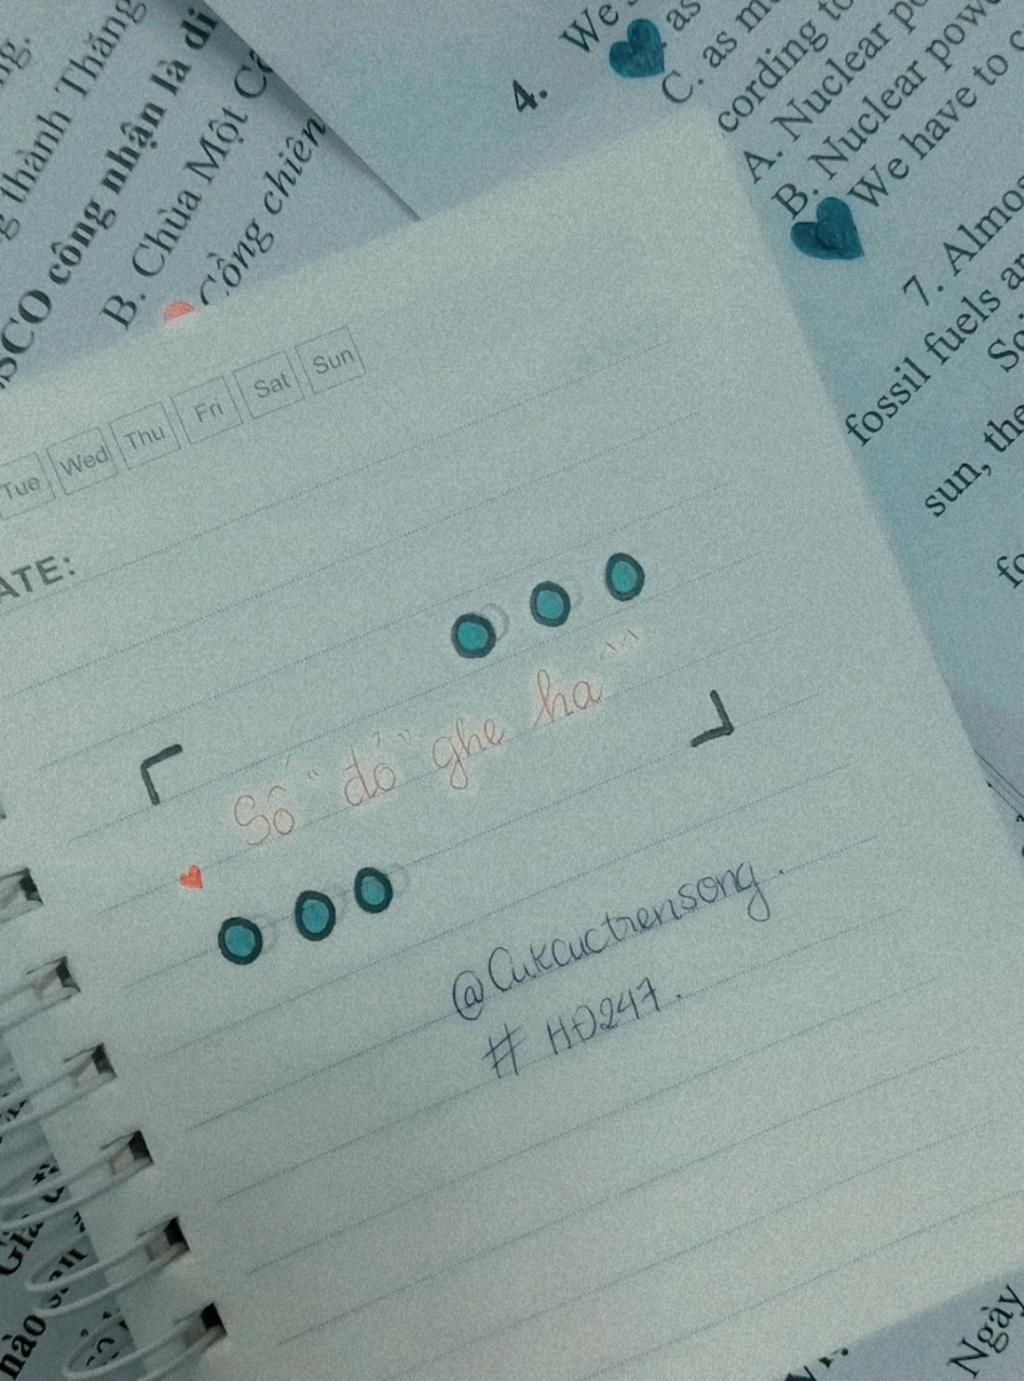 thành Thăng
SCO công nhận là di
B. Chùa Một
Cồng chiên
4. We
as
C. as
cording to
A. Nuclear
B. Nuclear
We have to
7. Almos
fossil fuels
sun, the
Tue Wed Thu Fri Sat Sun
ATE:
Số "đỏ" ghe ha ^^
@Cukcuctrensong.
# HĐ247.
nào
Ngày